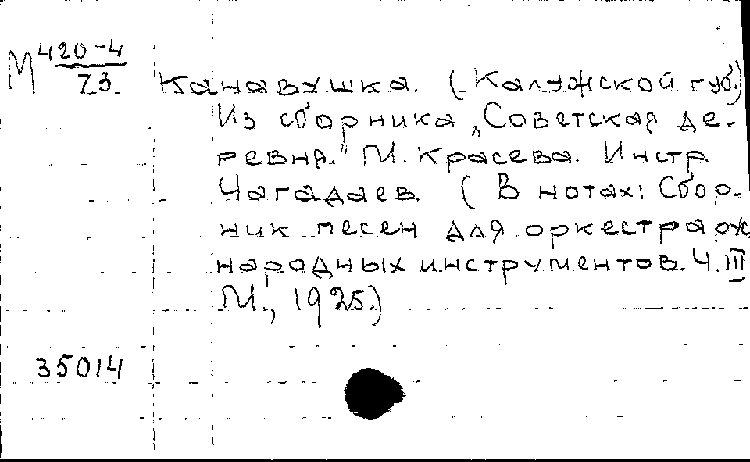 М 420-4
73.
Канавушка. (Калужской губ.)
Из сборника „Советская де-
ревня." М. Красева. Инстр.
Чагадаев. (В нотах: Сбор-
ник песен для оркестра
народных инструментов. Ч. III
М., 1925.)
35014